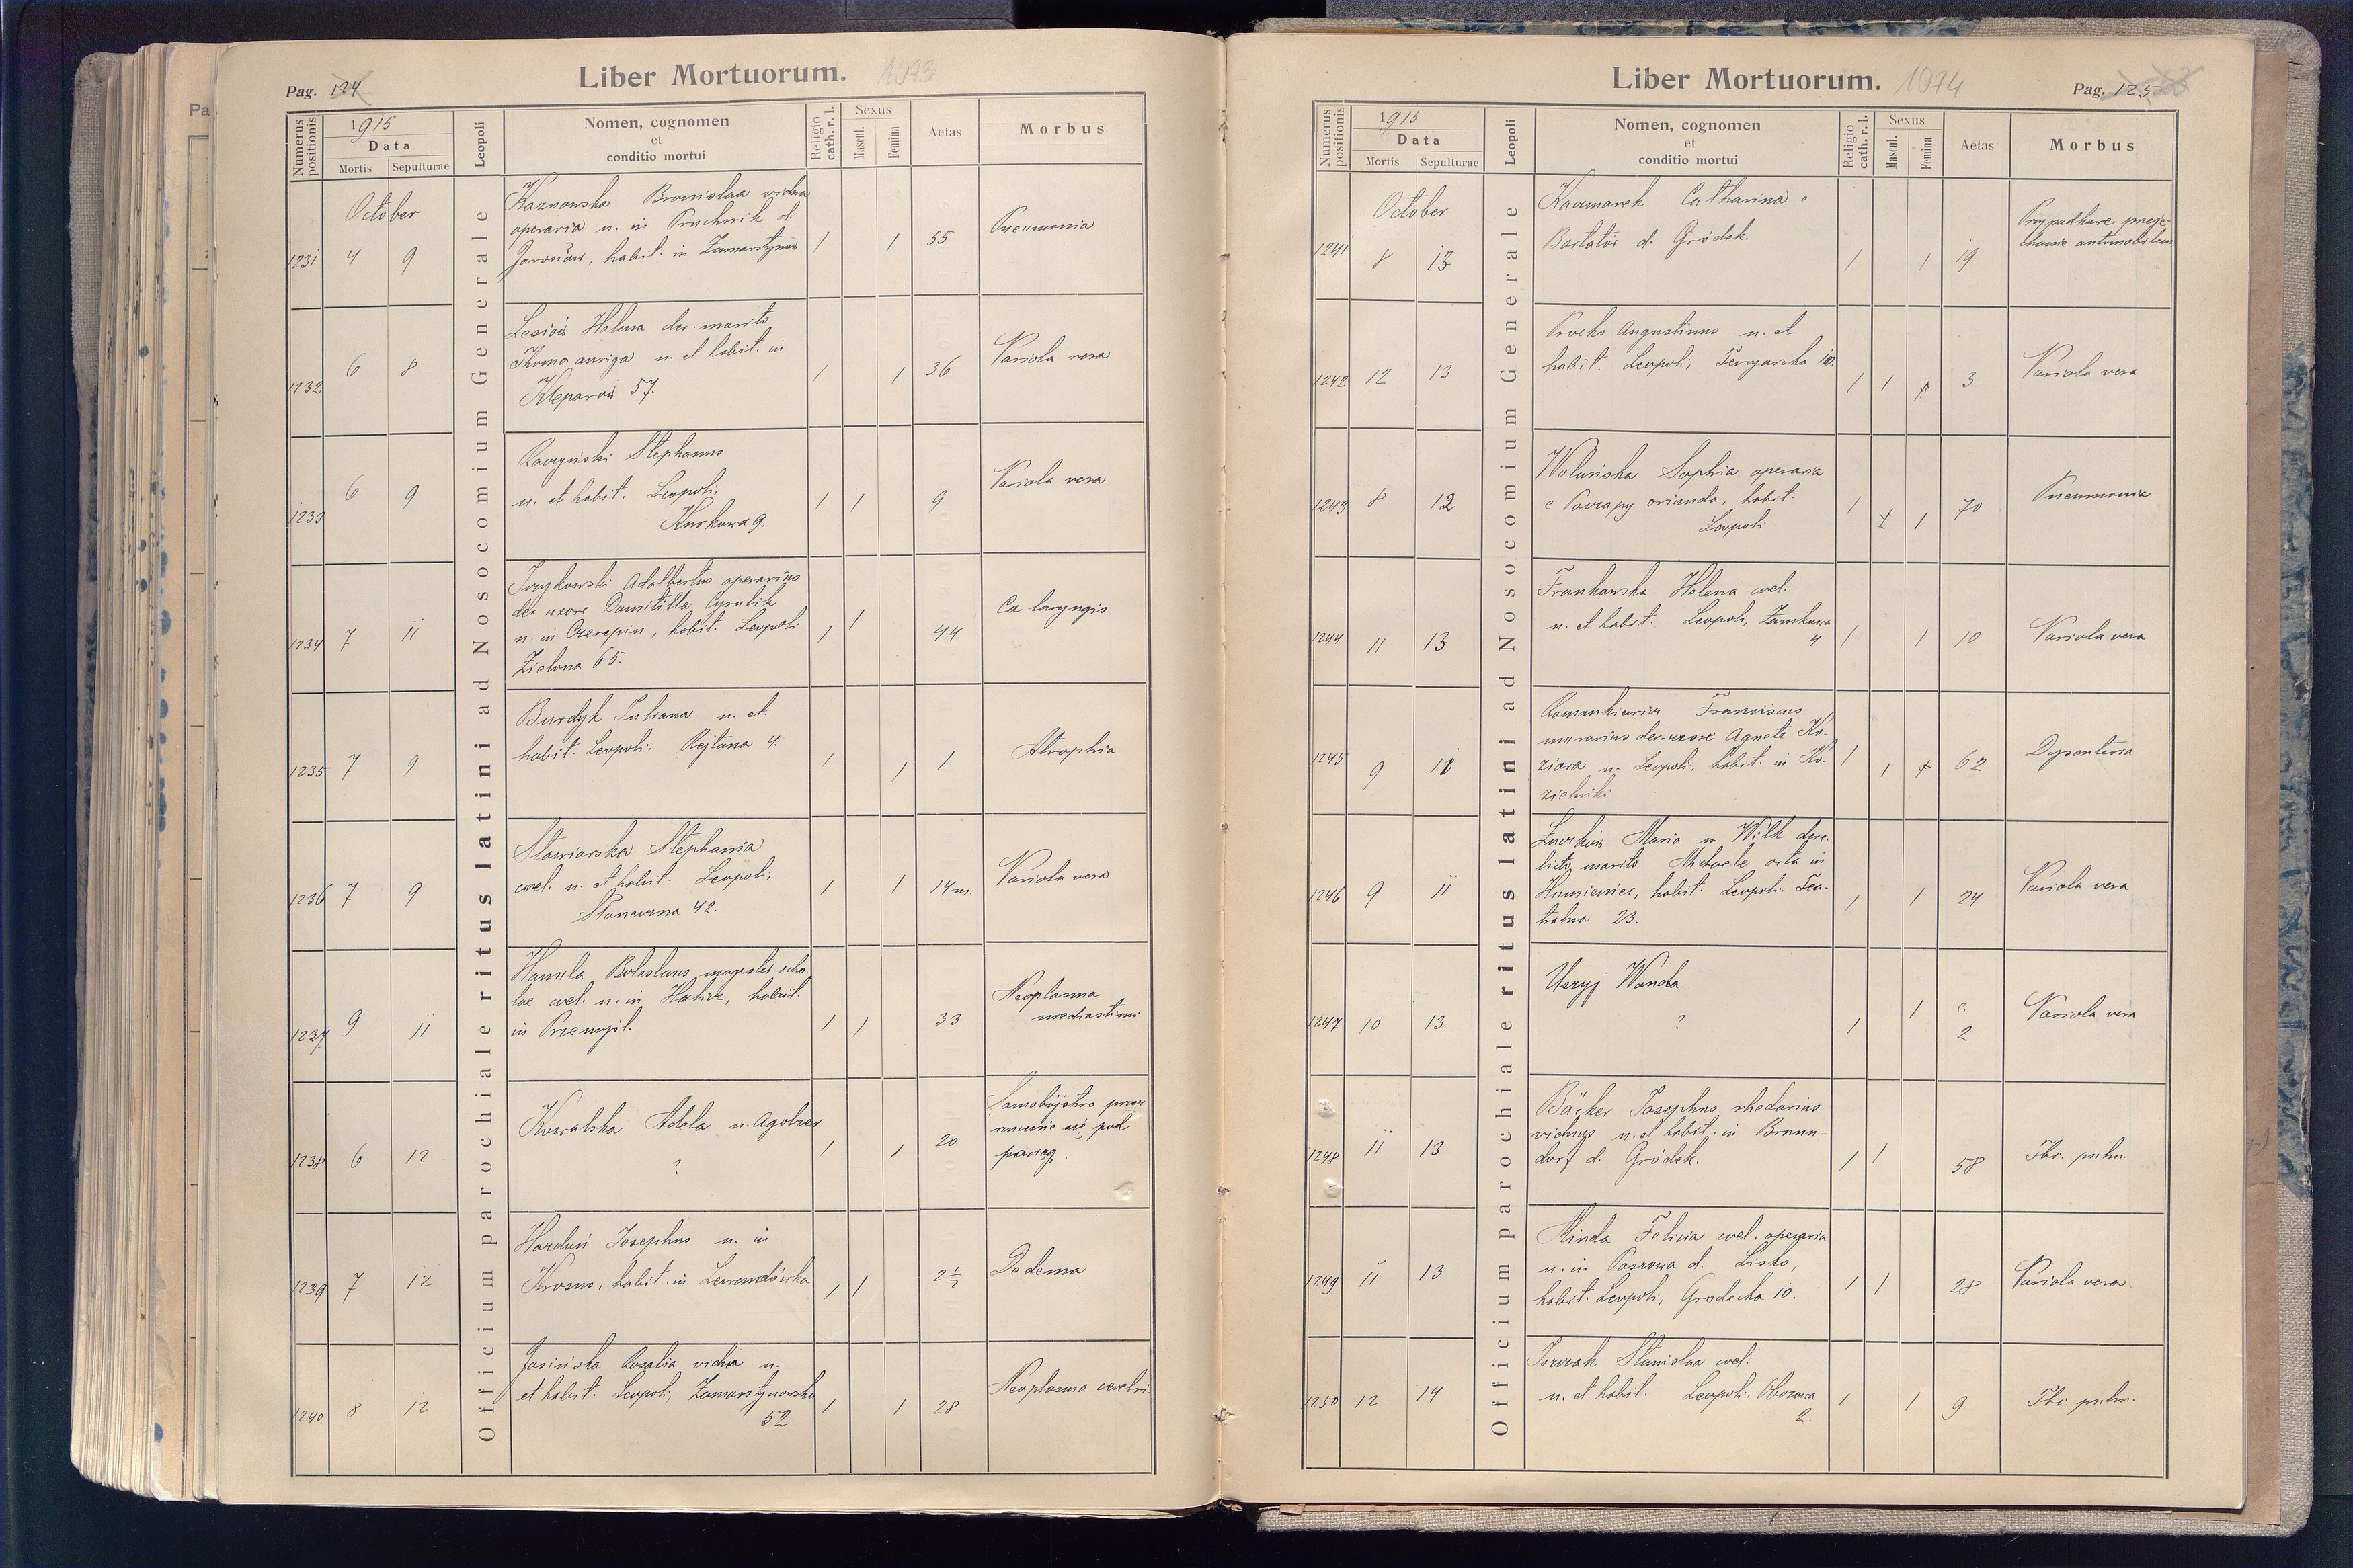 Liber Mortuorum. 1073
Pag. 124
Numerus positionis
1915
Data
Mortis
Sepulturae
Leopoli
Nomen, cognomen
et
conditio mortui
Religio cath. r. l.
Sexus
Mascul.
Femina
Aetas
Morbus
Officium parochiale ritus latini ad Nosocomium Generale
October
1231 4 9
operaria n. in Pruchnik d.
habit. in
1 1 55 Pneumonia
1232 6 8
Helena der. marito
Thoma auriga n. et habit. in
57.
1 1 36 Variola vera
1233 6 9
Stephanus
n. et habit. Leopoli,
Kurkowa 9.
1 1 9 Variola vera
1234 7 11
Adalbertus operarius
der. uxore Domitilla Cyrulik
n. in Czerepin, habit. Leopoli
Zielona 65.
1 1 44 Ca laryngis
1235 7 9
Burdyk Juliana n. et
habit. Leopoli. Rejtana 4.
1 1 1 Atrophia
1236 7 9
Stephania
coel. n. et habit. Leopoli,
42.
1 1 14 m. Variola vera
1237 9 11
Boleslaus magister scho-
lae coel. n. in Halicz, habit.
in Przemyśl.
1 1 33 Neoplasma
mediastini
1238 6 12
Kowalska Adela n.
?
1 1 20 Samobójstwo
się pod
pociąg.
1239 7 12
Josephus n. in
Krosno, habit. in Lewandówka
1 1 2½ Oedema
1240 8 12
Jasińska Rosalia vidua n.
et habit. Leopoli, Zamarstynowska
52
1 1 28 Neoplasma cerebri
Liber Mortuorum. 1074
Pag. 125
Numerus positionis
1915
Data
Mortis
Sepulturae
Leopoli
Nomen, cognomen
et
conditio mortui
Religio cath. r. l.
Sexus
Mascul.
Femina
Aetas
Morbus
Officium parochiale ritus latini ad Nosocomium Generale
October
1241 8 13
Kaczmarek Catharina e
Bartatów d. Gródek.
1 1 19 Przypadkowe przeje-
chanie automobilem
1242 12 13
Augustinus n. et
habit. Leopoli,
1 1 3 Variola vera
1243 8 12
Sophia operaria
e oriunda, habit.
Leopoli
1 1 70 Pneumonia
1244 11 13
Frankowska Helena coel.
n. et habit. Leopoli, Zamkowa
4
1 1 10 Variola vera
1245 9 11
Romankiewicz Franciscus
murarius der. uxore Agnete Ko-
ziara n. Leopoli, habit. in Ko-
zielniki.
1 1 62 Dysenteria
1246 9 11
Maria n. Wilk dere-
licta marito Michaele orta in
Humieniec, habit. Leopoli. Tea-
tralna 23.
1 1 24 Variola vera
1247 10 13
Wanda
?
1 1 c.
2
Variola vera
1248 11 13
Bäcker Josephus rhedarius
viduus n. et habit. in Brunn-
dorf d. Gródek.
1 1 58 Tbc. pulm.
1249 11 13
Minda Felicia coel. operaria
n. in d. Lisko,
habit. Leopoli, Grodecka 10.
1 1 28 Variola vera
1250 12 14
Stanislaa coel.
n. et habit. Leopoli.
2.
1 1 9 Tbc. pulm.